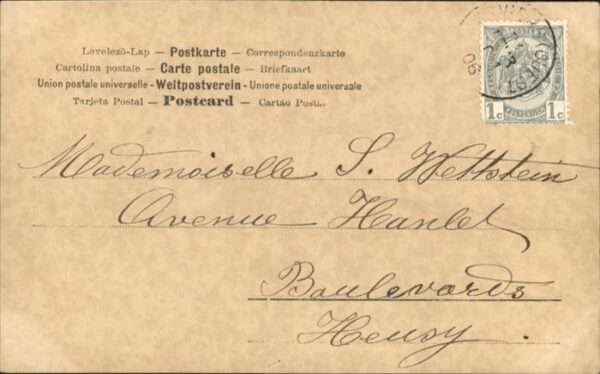 Levelező-Lap — Postkarte — Correspondenzkarte
Cartolina postale — Carte postale — Briefkaart
Union postale universelle — Weltpostverein — Unione postale universale
Tarjeta Postal — Postcard — Cartão Postal
1c 1c
OUEST
06
Mademoiselle S. Wettstein
Avenue Hanlet
Boulevards
Heusy.